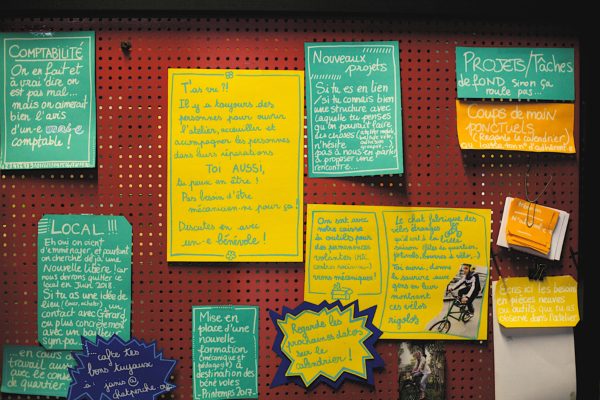 COMPTABILITÉ
On en fait et
à vrai dire on
est pas mal...
mais on aimerait
bien l'avis
d'un·e vrai·e
comptable !
T'as vu ?!
Il y a toujours des
personnes pour ouvrir
l'atelier, accueillir et
accompagner les personnes
dans leurs réparations
TOI AUSSI,
tu peux en être !
Pas besoin d'être
mécanicien·ne pour ça !
Discutes en avec
un·e bénévole !
Nouveaux
projets
Si tu es en lien
/si tu connais bien
une structure, avec
laquelle tu penses
qu'on pourrait faire
des choses
n'hésite
pas à nous en parler
à proposer une
rencontre...
PROJETS/Tâches
de FOND sinon ça
roule pas...
Coups de main
PONCTUELS
(Regarde le calendrier)
LOCAL !!!
Eh oui on vient
d'emménager et pourtant
on cherche déjà une
Nouvelle libère ! Car
nous devrons quitter ce
local en Juin 2018
Si tu as une idée de
lieu
contact avec Gérard
ou plus concrètement
avec un bailleur
sympa.
On sait avec
notre caisse
à outils pour des
permanences
volantes
vens mécaniques !
Le chat fabrique des
vélos étranges
qu'il sort à la belle
saison (fêtes de quartier,
festivals, bourses à vélo...)
Toi aussi, donne
le sourire aux
gens en leur
montrant
ces vélos
rigolos
Écris ici les besoins
en pièces neuves
ou outils que tu as
observé dans l'atelier
en cours
travail avec
avec le conseil
de quartier
tes
bons tuyaux
à :
Mise en
place d'une
nouvelle
formation
(mécanique et
pédagogie) à
destination des
bénévoles
- Printemps 2017 -
Regarde les
prochaines dates
sur le
calendrier !